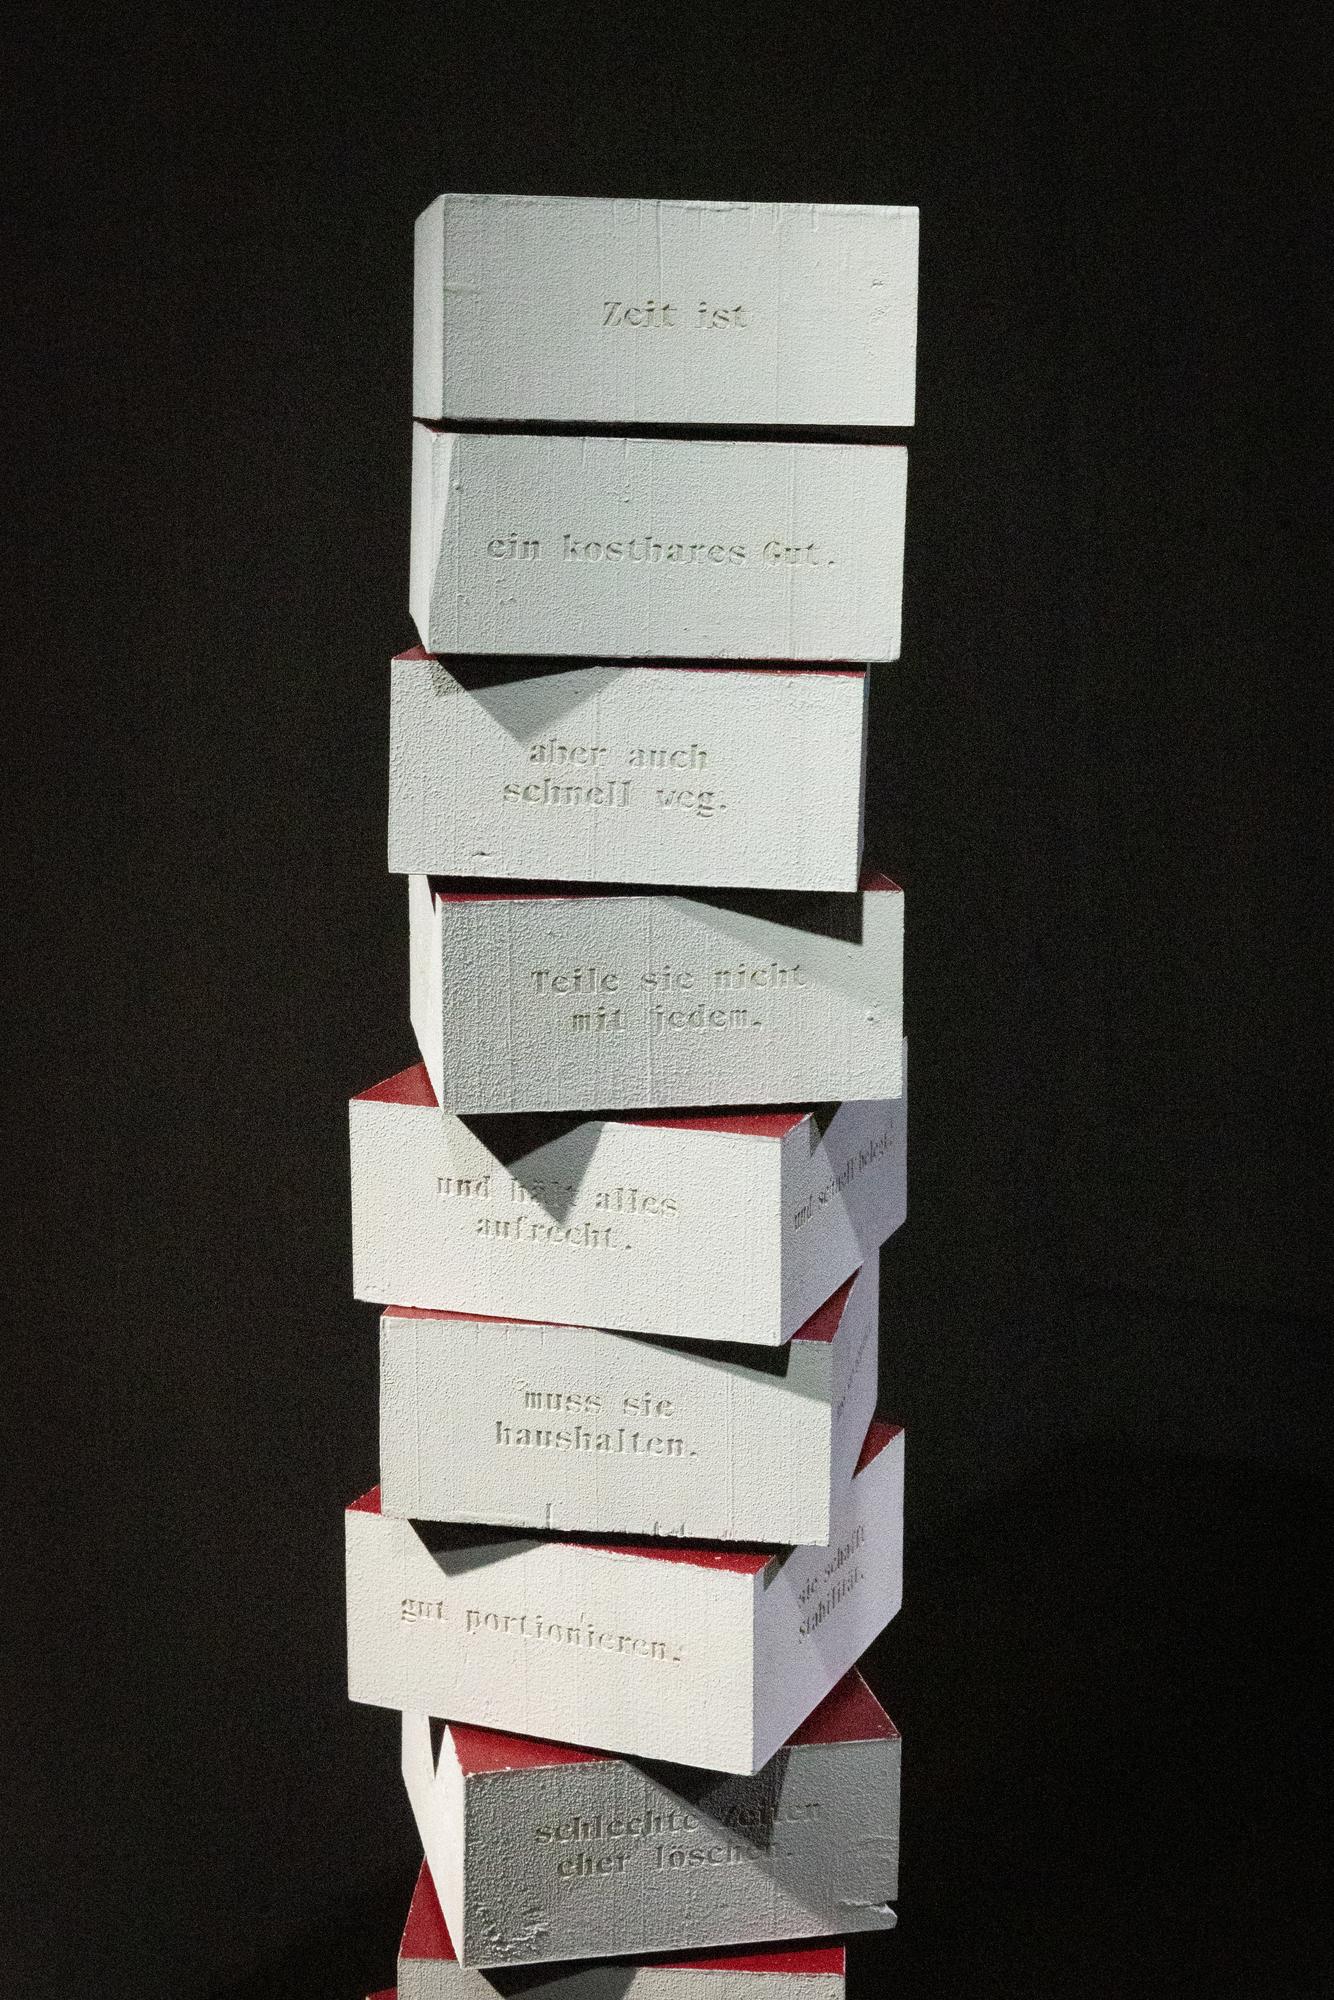 Zeit ist
ein kostbares Gut.
aber auch
schnell weg.
Teile sie nicht
mit jedem.
und hält alles
aufrecht.
und schnell belegt.
muss sie
haushalten.
gut portionieren.
sie schafft
Stabilität.
schlechte Zeiten
eher löschen.